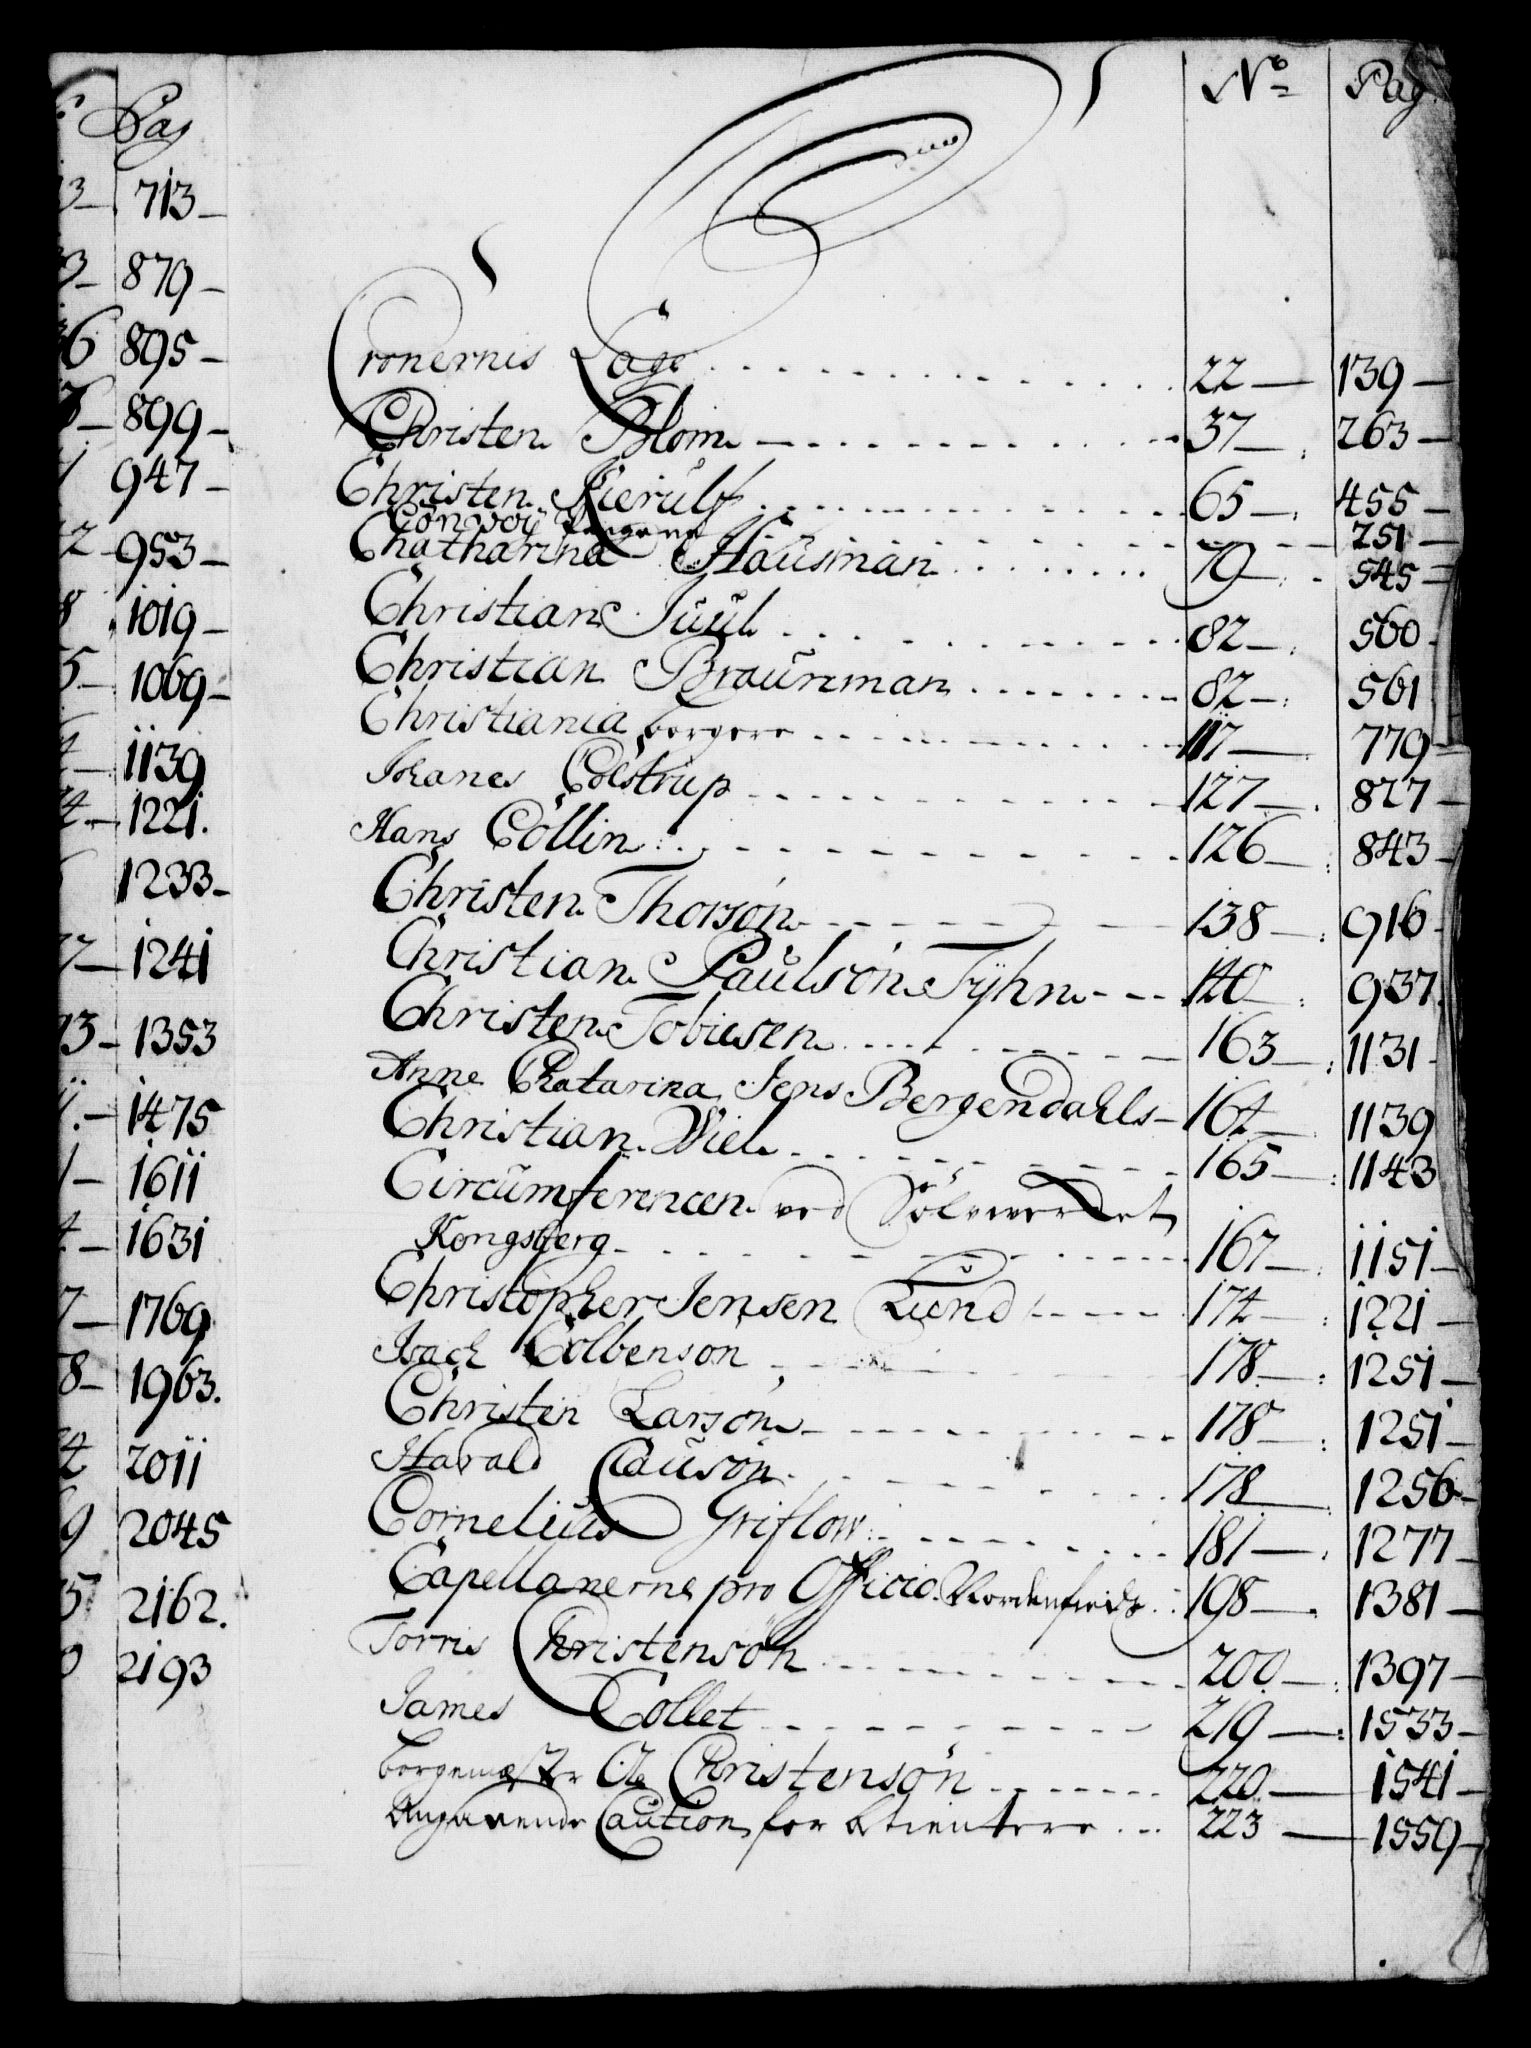 Pag
713
879
6 895
899
947
2 953
8 1019
5 1069
4 1139
4 1221
1233
7 1241
3 1353
1475
1 1611
4 1631
7 1769
8 1963
4 2011
9 2045
5 2162
2193
C
No Pag
Cronernis Lage 22 139
Christen Blom 37 263
Christen Kierulf 65 455
251
Chatharina Hausman 79 545
Christian Juul 82 560
Christian Braunman 82 561
Christiania borgere 117 779
Johanes Colstrup 127 827
Hans Collin 126 843
Christen Thorsøn 138 916
Christian Paulsøn Tÿhn 140 937
Christen Tobiesen 163 1131
Anne Chatarina Jens Bergendahls 164 1139
Christian Wiel 165 1143
Circumferencen ved Sølvverket
Kongsberg 167 1151
Christopher Jensen Lund 174 1221
Isach Colbenson 178 1251
Christen Larsøn 178 1251
Harald Clausøn 178 1256
Cornelius Griflow 181 1277
Capellanerne pro Officio Nordenfields 198 1381
Torris Christensøn 200 1397
James Collet 219 1533
borgemester Ole Christensøn 220 1541
Angaaende Caution for 223 1559